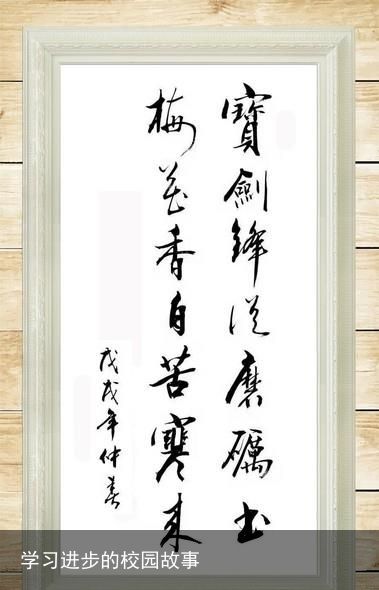 寶劍鋒從磨礪出
梅花香自苦寒來
戊戌年仲春
学习进步的校园故事